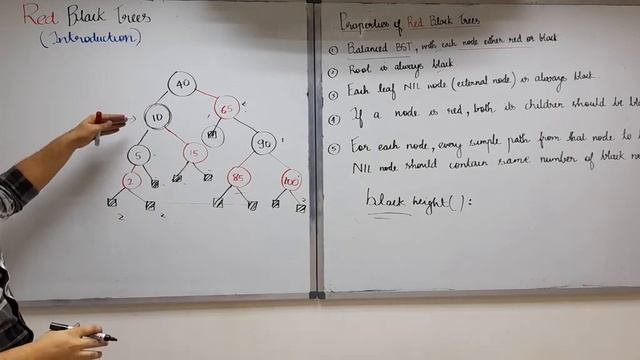 Red Black Trees
(Introduction)
40
10
65
5
15
90
2
85
100
2
2
Properties of Red Black Trees
① Balanced BST, with each node either red or black
② Root is always black
③ Each leaf NIL node (external node) is always black
④ If a node is red, both its children should be
⑤ For each node, every simple path from that node to
NIL node should contain same number of black
black height():